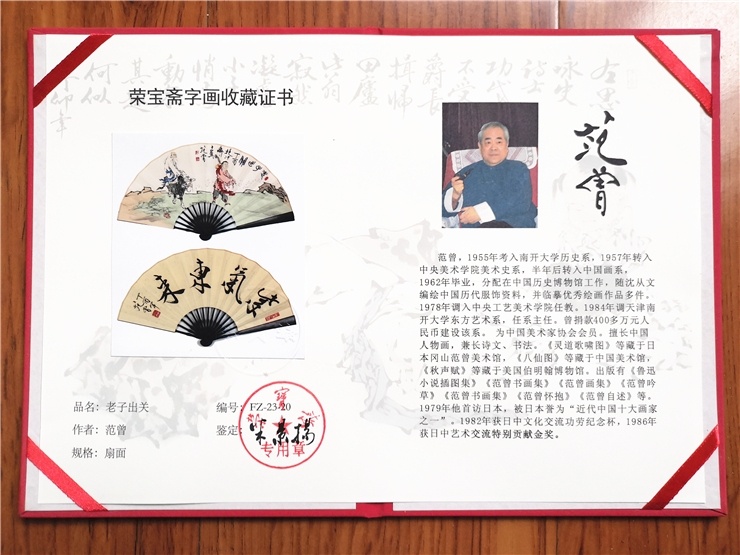 荣宝斋字画收藏证书
紫氣東來
品名：老子出关
编号：FZ-23-20
作者：范曾
鉴定：
规格：扇面
专用章
范曾
范曾，1955年考入南开大学历史系，1957年转入
中央美术学院美术史系，半年后转入中国画系，
1962年毕业，分配在中国历史博物馆工作，随沈从文
编绘中国历代服饰资料，并临摹优秀绘画作品多件。
1978年调入中央工艺美术学院任教。1984年调天津南
开大学东方艺术系，任系主任。曾捐款400多万元人
民币建设该系。 为中国美术家协会会员。擅长中国
人物画，兼长诗文、书法。《灵道歌啸图》等藏于日
本冈山范曾美术馆，《八仙图》等藏于中国美术馆，
《秋声赋》等藏于美国伯明翰博物馆。出版有《鲁迅
小说插图集》《范曾书画集》《范曾画集》《范曾吟
草》《范曾书画集》《范曾怀抱》《范曾自述》等。
1979年他首访日本，被日本誉为“近代中国十大画家
之一”。1982年获日中文化交流功劳纪念杯，1986年
获日中艺术交流特别贡献金奖。